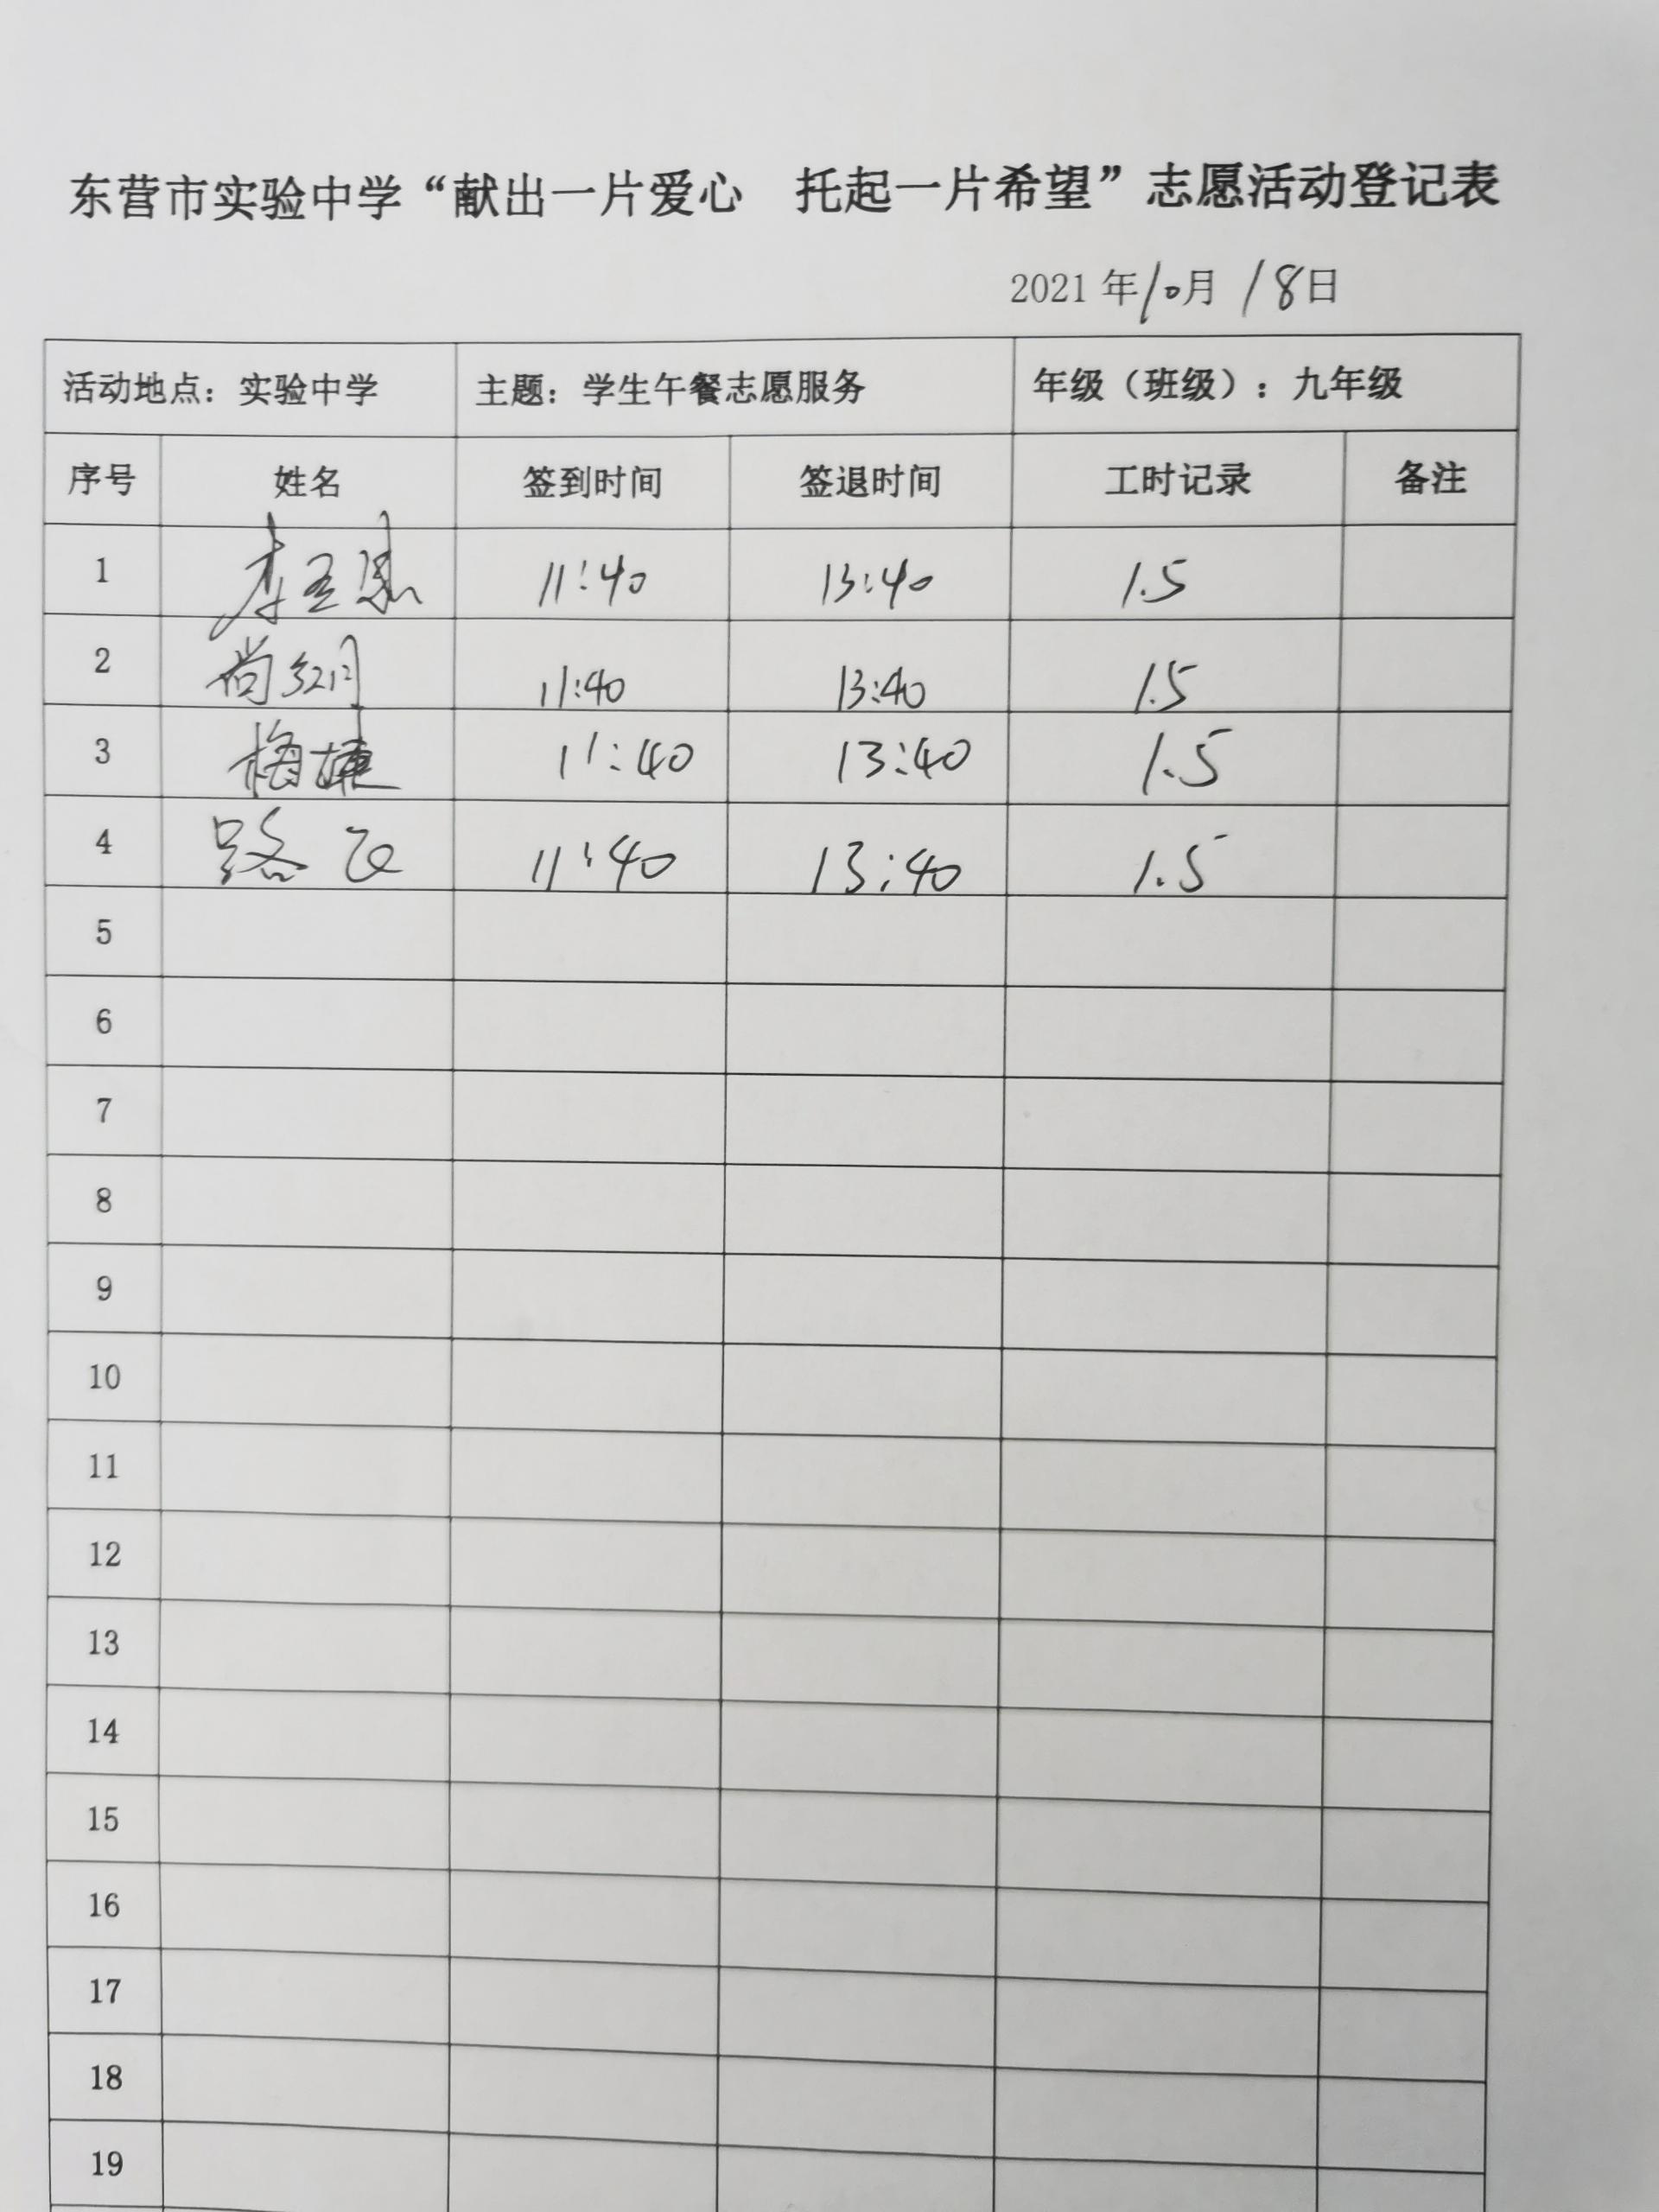 东营市实验中学“献出一片爱心 托起一片希望”志愿活动登记表
2021年10月18日
活动地点：实验中学 主题：学生午餐志愿服务 年级（班级）：九年级
序号 姓名 签到时间 签退时间 工时记录 备注
1 李 11:40 13:40 1.5
2 尚 11:40 13:40 1.5
3 梅 11:40 13:40 1.5
4 路飞 11:40 13:40 1.5
5
6
7
8
9
10
11
12
13
14
15
16
17
18
19